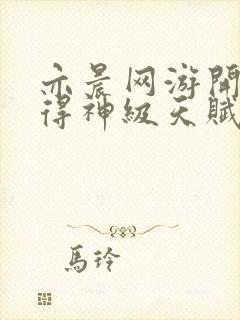 亦晨网游開
得神級天賦
馬玲